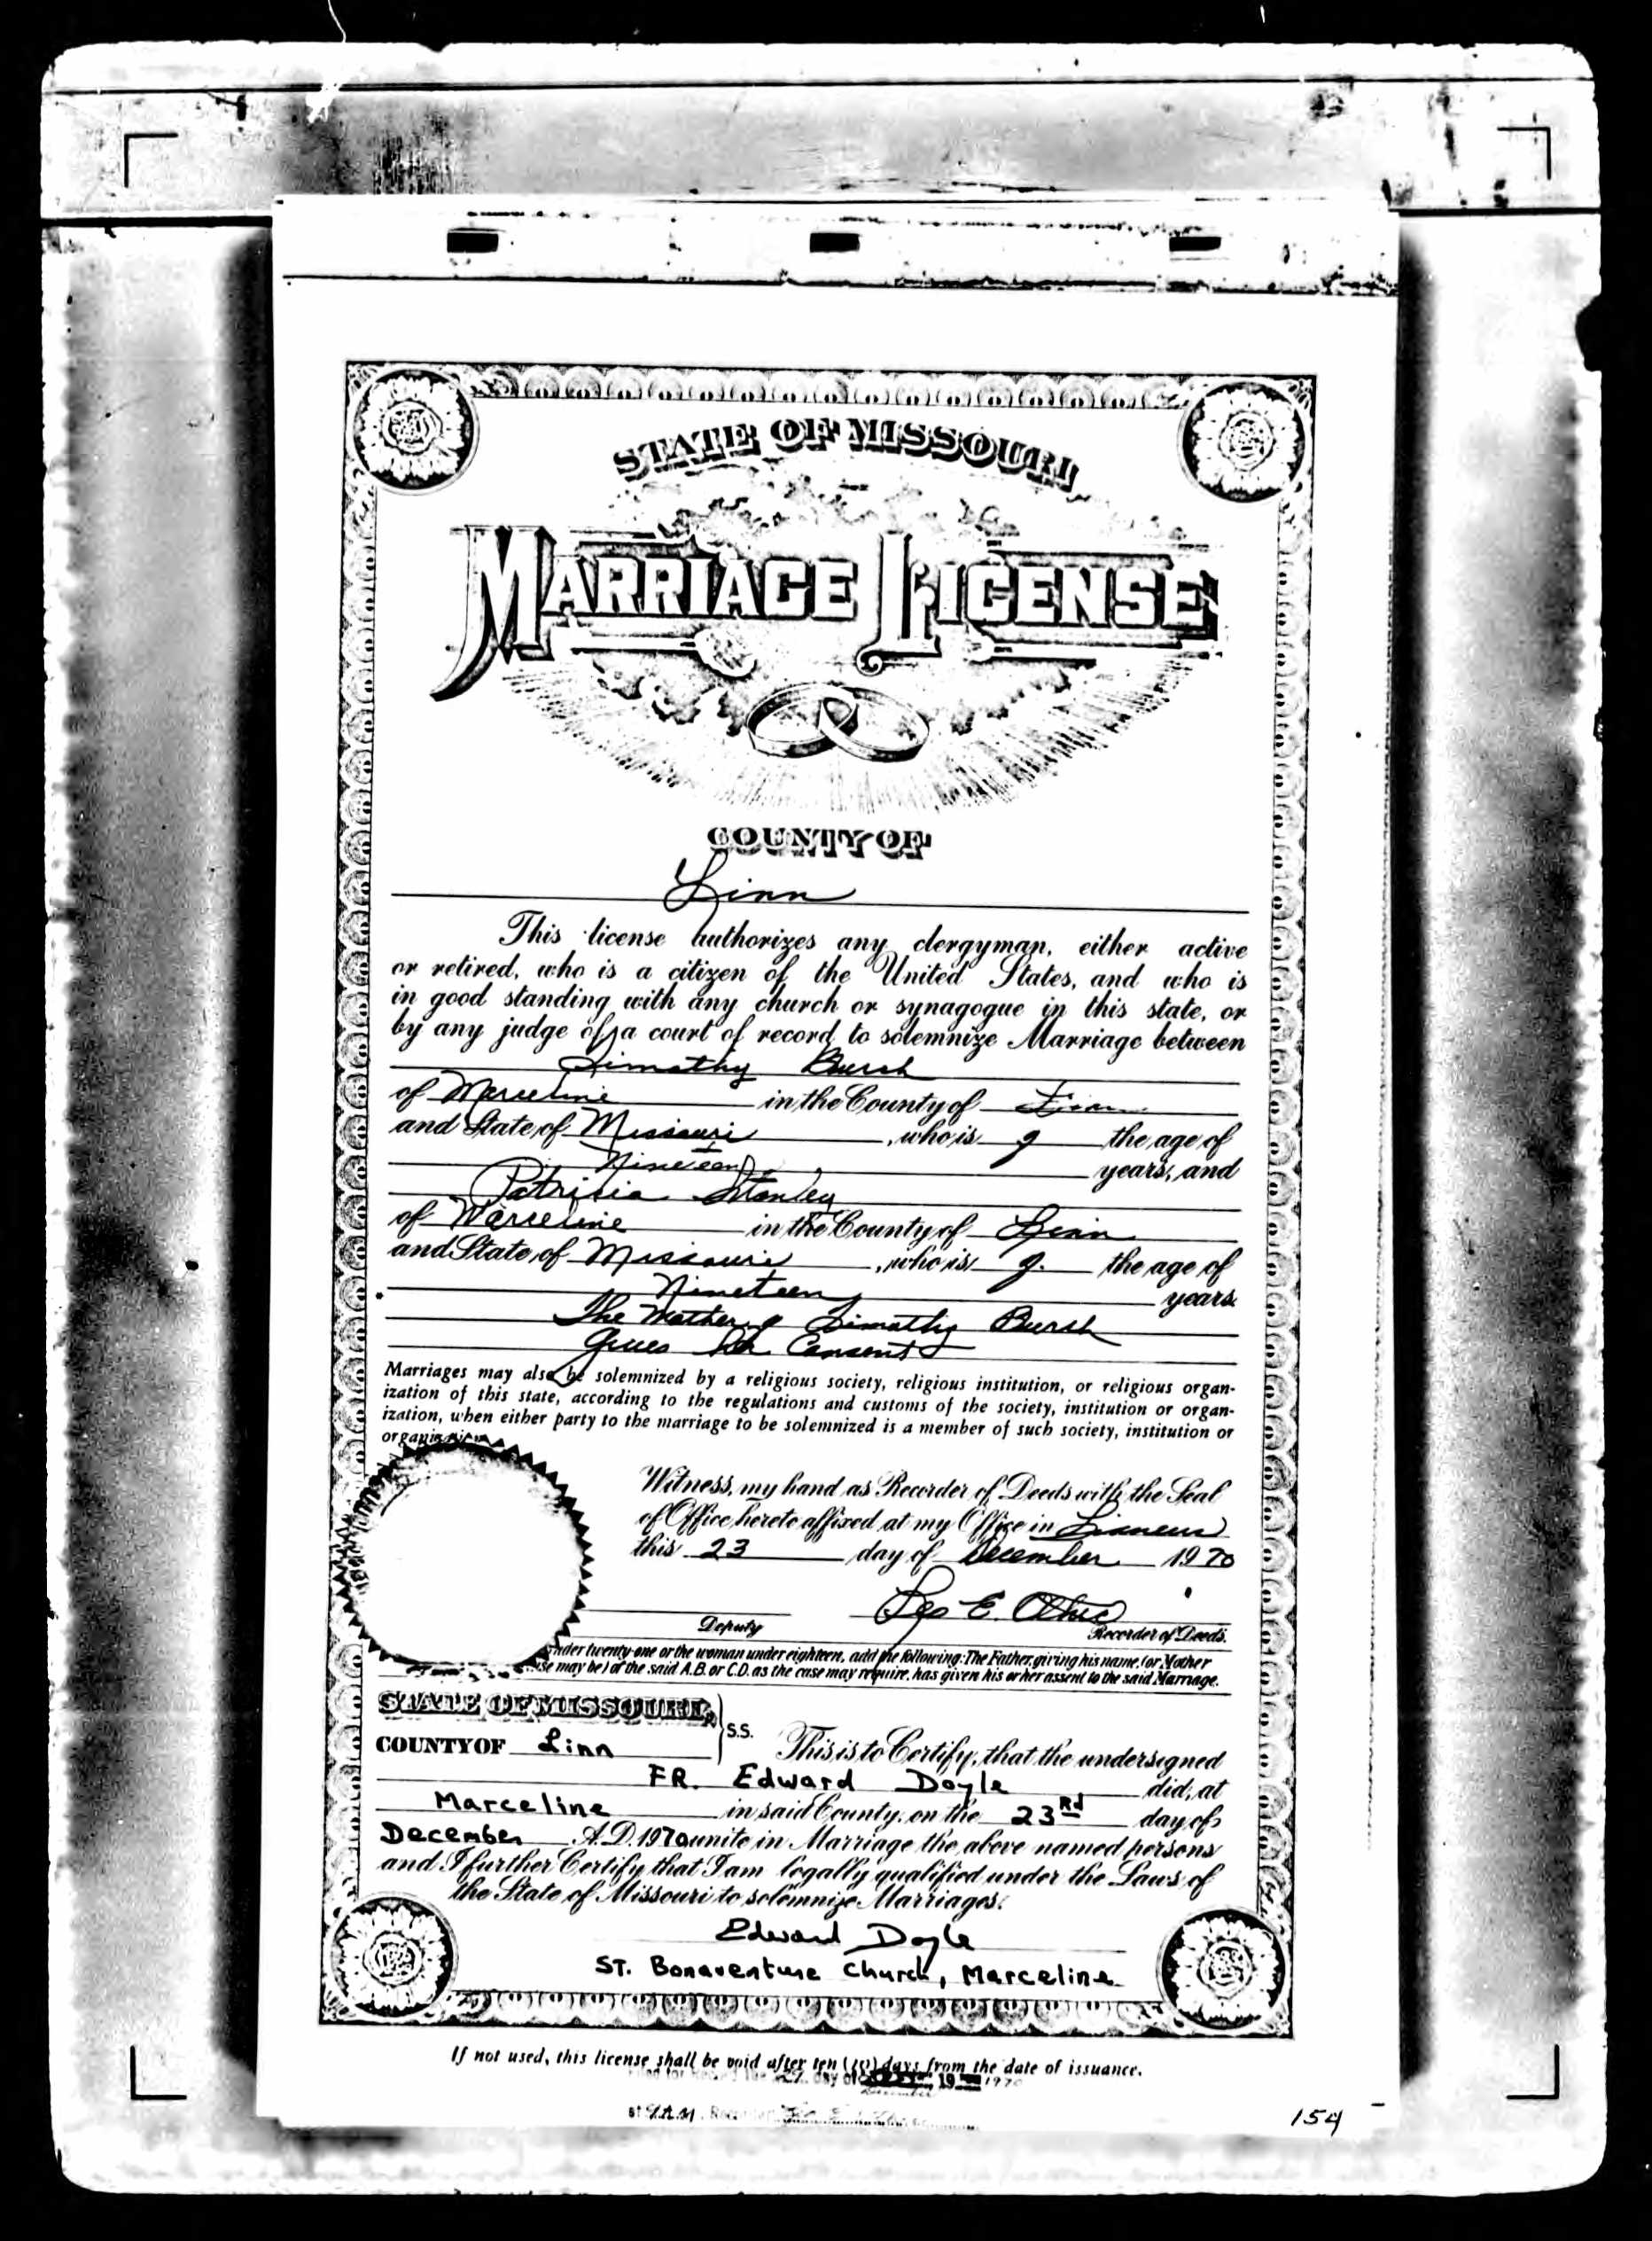 STATE OF MISSOURI
MARRIAGE LICENSE
COUNTY OF
Linn
This license authorizes any clergyman, either active
or retired, who is a citizen of the United States, and who is
in good standing with any church or synagogue in this state, or
by any judge of a court of record to solemnize Marriage between
Timothy Bursh
of Marceline in the County of Linn
and State of Missouri, who is the age of
Nineteen years, and
Patricia Stanley
of Marceline in the County of Linn
and State of Missouri, who is the age of
Nineteen years.
The Mother of Timothy Bursh
Gives her Consent
Marriages may also be solemnized by a religious society, religious institution, or religious organ-
ization of this state, according to the regulations and customs of the society, institution or organ-
ization, when either party to the marriage to be solemnized is a member of such society, institution or
Witness, my hand as Recorder of Deeds with the Seal
of Office hereto affixed at my Office in Linneus
this 23 day of December 1970
Leo E.
Deputy Recorder of Deeds.
under twenty-one or the woman under eighteen, add the following: The Father, giving his name, (or Mother
may be) of the said A.B. or C.D. as the case may require, has given his or her assent to the said Marriage.
STATE OF MISSOURI,
COUNTY OF Linn S.S. This is to Certify, that the undersigned
FR. Edward Doyle did, at
Marceline in said County, on the 23Rd day of
December A.D. 1970 unite in Marriage the above named persons
and I further Certify that I am legally qualified under the Laws of
the State of Missouri to solemnize Marriages.
Edward Doyle
ST. Bonaventure Church, Marceline
If not used, this license shall be void after ten (10) days from the date of issuance.
day of December 19 1970
at 9 A.M.
154